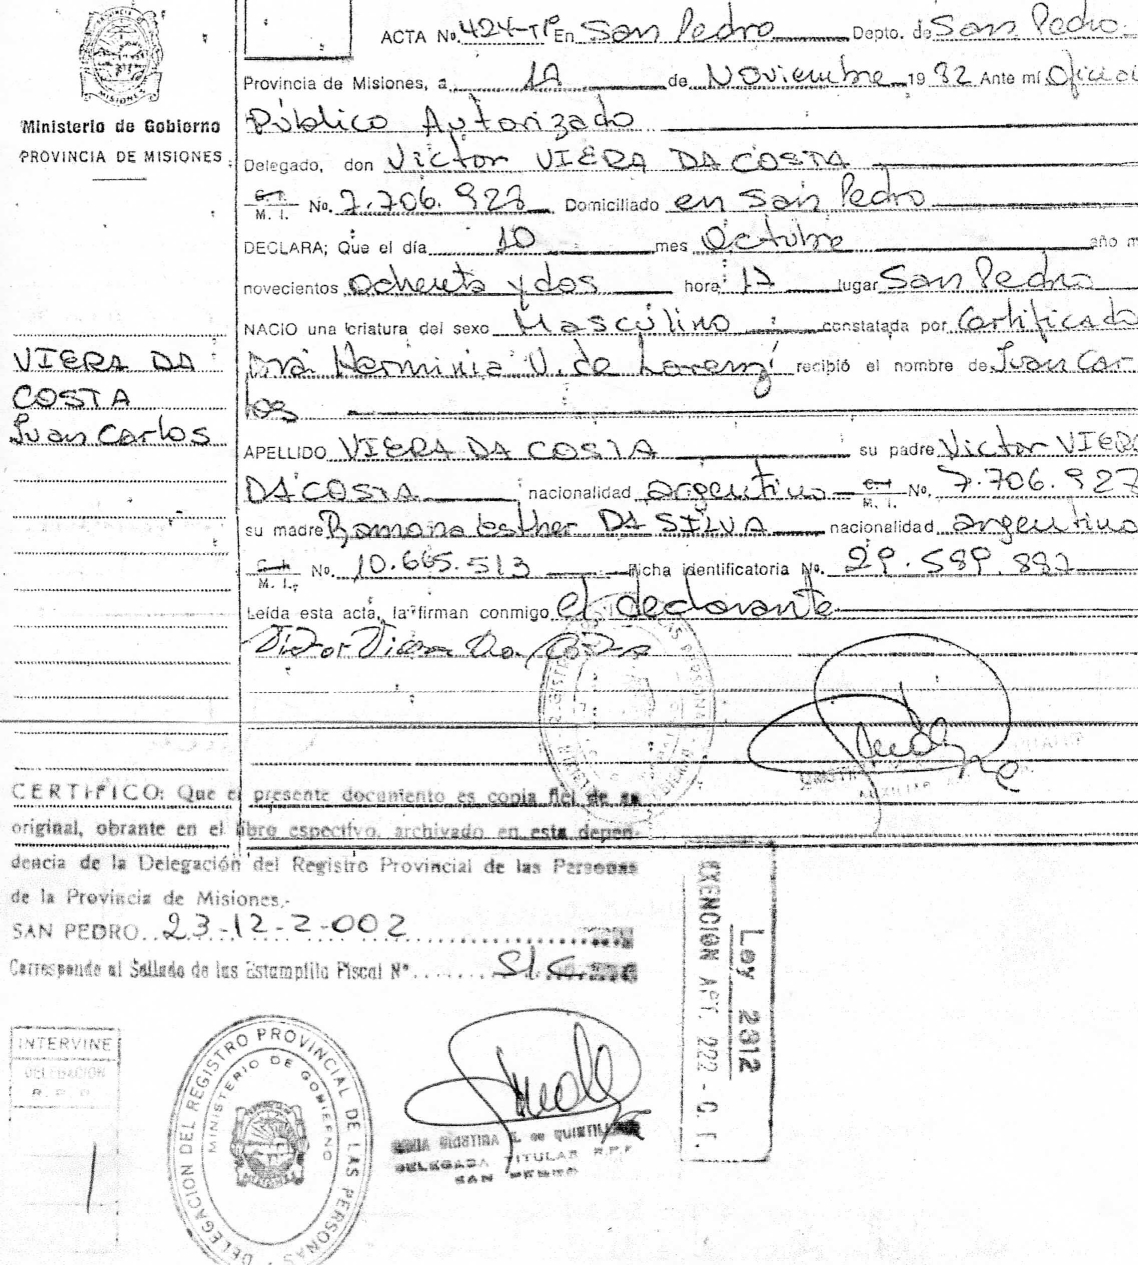 ACTA No. 424-Tº En San Pedro Depto. de San Pedro
Provincia de Misiones, a de Noviembre 1982 Ante mí Oficial
Público Autorizado
Ministerio de Gobierno
PROVINCIA DE MISIONES
Delegado, don Victor VIERA DA COSTA
C. I. M. I. No. 7.706.927 Domiciliado en San Pedro
DECLARA; Que el día 10 mes Octubre año m
novecientos Ochenta y dos hora 17 lugar San Pedro
NACIO una criatura del sexo Masculino constatada por Certificado
VIERA DA
COSTA
Juan Carlos
Dra Herminia V. de Lorenzi recibió el nombre de Juan Car-
los
APELLIDO VIERA DA COSTA su padre Victor VIERA
DA COSTA nacionalidad argentino C. I. M. I. No. 7.706.927
su madre Ramona Esther DA SILVA nacionalidad argentina
C. I. M. I. No. 10.665.513 Ficha identificatoria No. 29.589.887
Leída esta acta, la firman conmigo el declarante
Victor Viera Da Costa
CERTIFICO: Que el presente documento es copia fiel de su
original, obrante en el libro especivo, archivado en esta depen-
dencia de la Delegación del Registro Provincial de las Personas
de la Provincia de Misiones.-
SAN PEDRO. 23-12-2-002
Corresponde al Sellado de las Estampilla Fiscal Nº S/C
EXENCION ART. 222 - C F.
Ley 2812
INTERVINE
DELEGACION
R. P. P.
DELEGACION DEL REGISTRO PROVINCIAL DE LAS PERSONAS
MINISTERIO DE GOBIERNO
DELEGADA TITULAR R.P.P
SAN PEDRO